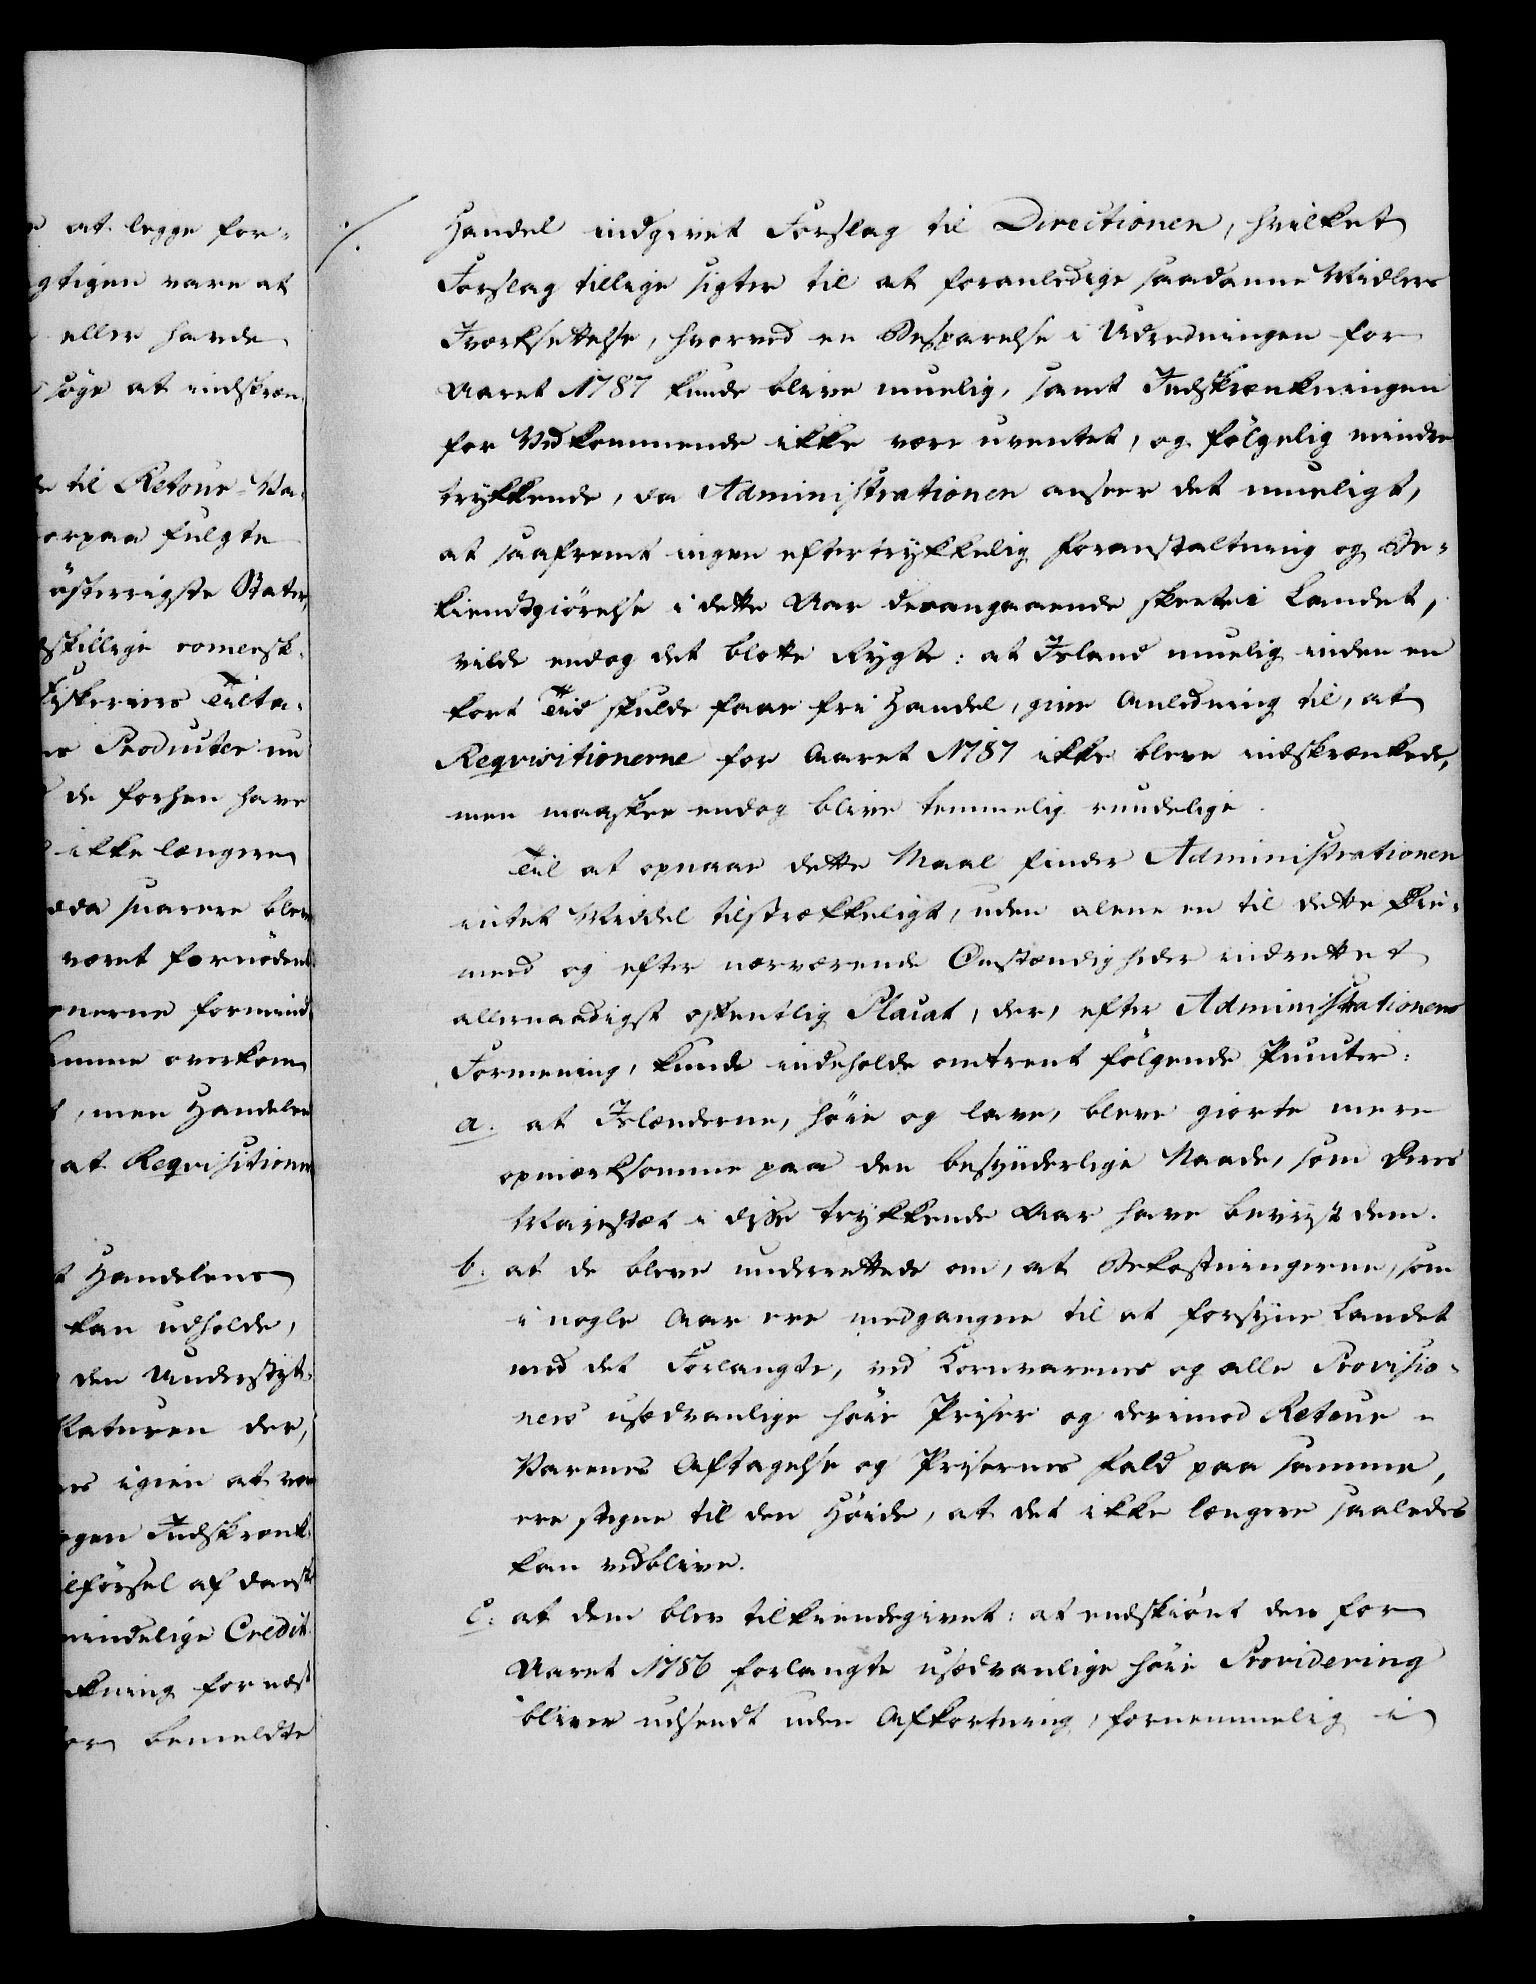 at legge for-
gtigen være at
eller havde
söge at indskræn
til Retour-Va-
orpaa fulgte
österrigske Stater,
skillige romersk-
Fiskeriers Tilta-
Producter nu
de forhen have
ikke længere
svarere blev
været fornöden
nerne formind
overkom
, men Handelen
at Reqvisitionen
Handelens
kan udholde,
den Understøt-
Naturen der,
igien at vær
Indskrænk-
ilførsel af dansk
mindelige Credit
kning for næst
bemeldte
Handel indgivet Forslag til Directionen, hvilket
Forslag tillige sigter til at foranledige saadanne Midlers
Iværksettelse, hvorved en Besparelse i Udredningen for
Aaret 1787 kunde blive muelig, samt Indskrænkningen
for Vedkommende ikke være uventet, og fölgelig mindre
trykkende, da Administrationen anseer det mueligt,
at saafremt ingen eftertrykkelig Foranstaltning og Be-
kiendtgiörelse i dette Aar derangaaende skeete i Landet,
vilde endog det blotte Rygte: at Island muelig inden en
kort Tiid skulde faae fri Handel, give Anledning til, at
Reqvisitionerne for Aaret 1787 ikke bleve indskrænkede,
men maaskee endog blive temmelig rundelige.
Til at opnaae dette Maal finder Administrationen
intet Middel tilstrækkeligt, uden alene en til dette Øie-
med og efter nærværende Omstændigheder indrettet
allernaadigst offentlig Placat, der, efter Administrationens
Formening, kunde indeholde omtrent fölgende Puncter:
a. at Islænderne, höie og lave, bleve giorte mere
opmærksomme paa den besynderlige Naade, som Deres
Majestæt i disse trykkende Aar have beviist dem.
b. at de bleve underrettede om, at Bekostningerne, som
i nogle Aar ere medgangne til at forsyne Landet
med det Forlangte, ved Kornvarenes og alle Provisio-
ners usædvanlige höie Priser og derimod Retour-
Varenes Aftagelse og Prisernes Fald paa samme,
ere stegne til den Höide, at det ikke længere saaledes
kan vedblive.
c. at dem blev tilkiendegivet: at endskiönt den for
Aaret 1786 forlangte usædvanlige höie Providering
bliver udsendt uden Afkortning, fornemmelig i